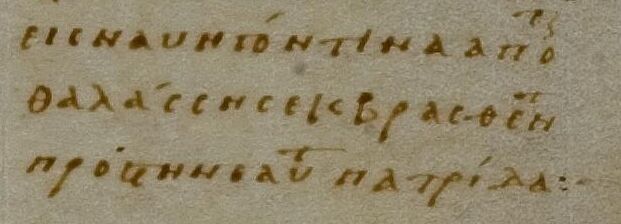 εις ναυηγόν τινα απὸ τῆς
θαλάσσης εκβρασθέντ
πρὸς τὴν εαυτ πατρίδα:-